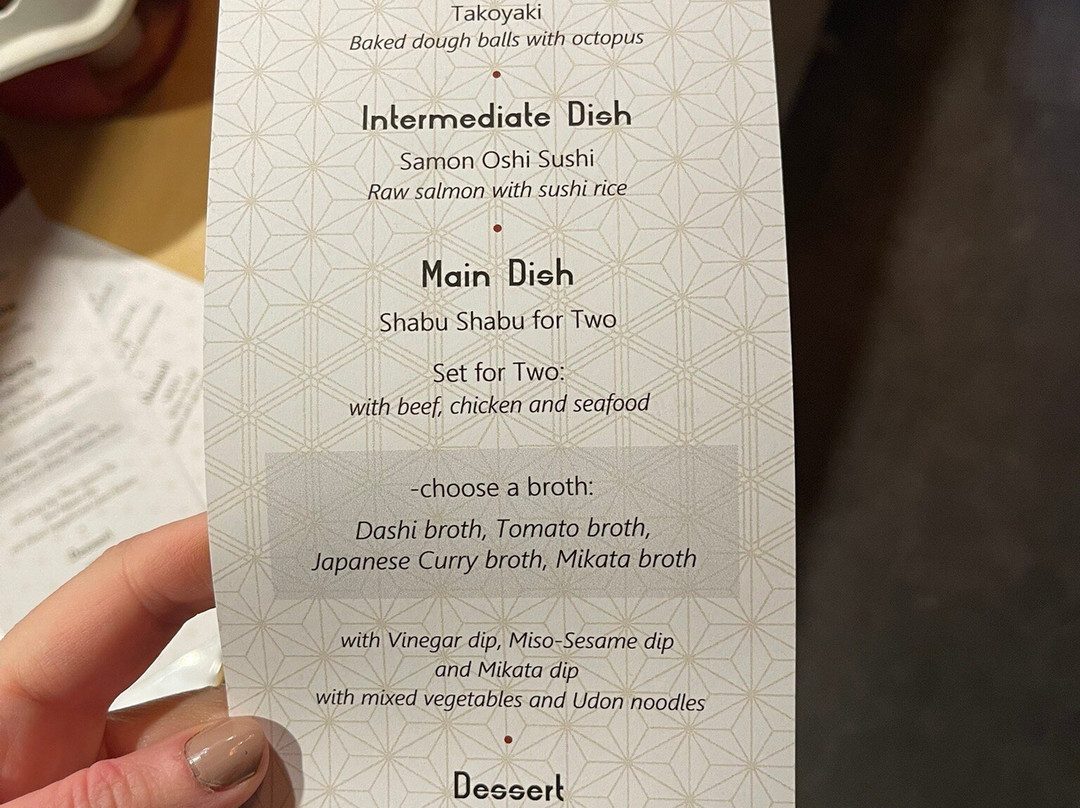 Takoyaki
Baked dough balls with octopus
Intermediate Dish
Samon Oshi Sushi
Raw salmon with sushi rice
Main Dish
Shabu Shabu for Two
Set for Two:
with beef, chicken and seafood
-choose a broth:
Dashi broth, Tomato broth,
Japanese Curry broth, Mikata broth
with Vinegar dip, Miso-Sesame dip
and Mikata dip
with mixed vegetables and Udon noodles
Dessert